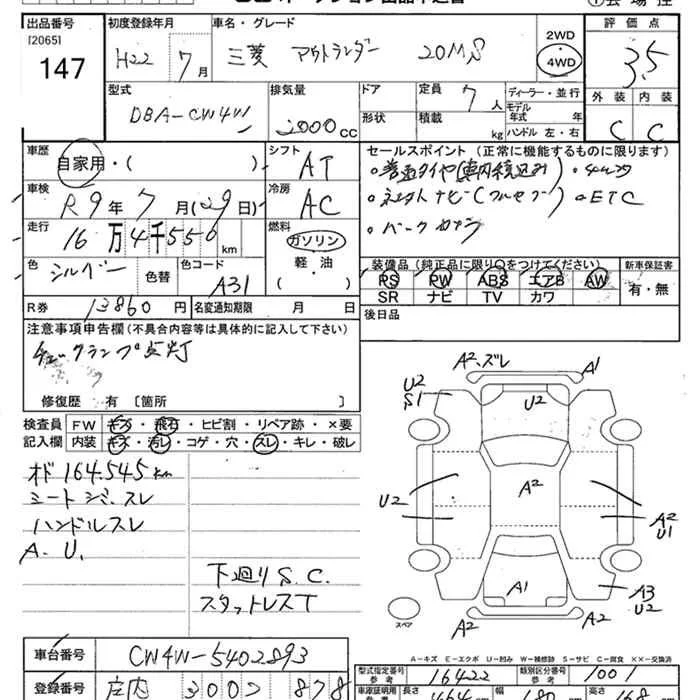 出品番号 初度登録年月 車名・グレード 評価点
[2065]
147 H22 7月 三菱 アウトランダー 20MS 2WD 4WD 3.5
型式 排気量 ドア 定員 ディーラー・並行 外装 内装
DBA-CW4W 2000cc 7人 モデル年式 年
形状 積載 kg ハンドル 左・右 C C
車歴 シフト セールスポイント (正常に機能するものに限ります)
自家用・( ) AT
車検 冷房
R9年7月(29日) AC ・ETC
走行 燃料 ・バックカメラ
16万4千550km ガソリン
色 色替 色コード 軽・油 装備品 (純正品に限り○をつけてください) 新車保証書
シルバー A31 ( ) PS PW ABS エアB AW 有・無
R券 13860円 名変通知期限 月 日 SR ナビ TV カワ
注意事項申告欄(不具合内容等は具体的に記入して下さい) 後日品
チェックランプ点灯
修復歴 有 [箇所 ]
検査員 FW キズ・飛石・ヒビ割・リペア跡・×要
記入欄 内装 キズ・汚レ・コゲ・穴・スレ・キレ・破レ
オド164.545km
シートシミ.スレ
ハンドルスレ
A. U.
下廻りS.C.
スタットレスT
A2.ズレ A1
U2 S1 U2
U2 A2 A2 U1
A1 A3 U2
A2 A2
スペア
A-キズ E-エクボ U-凹み W-補修跡 S-サビ C-腐食 ××-交換済
車台番号 CW4W-5402893 型式指定番号 参考 16422 類別区分番号 参考 1001
登録番号 庄内 300 878 車庫証明用 長さ 464 幅 180 168